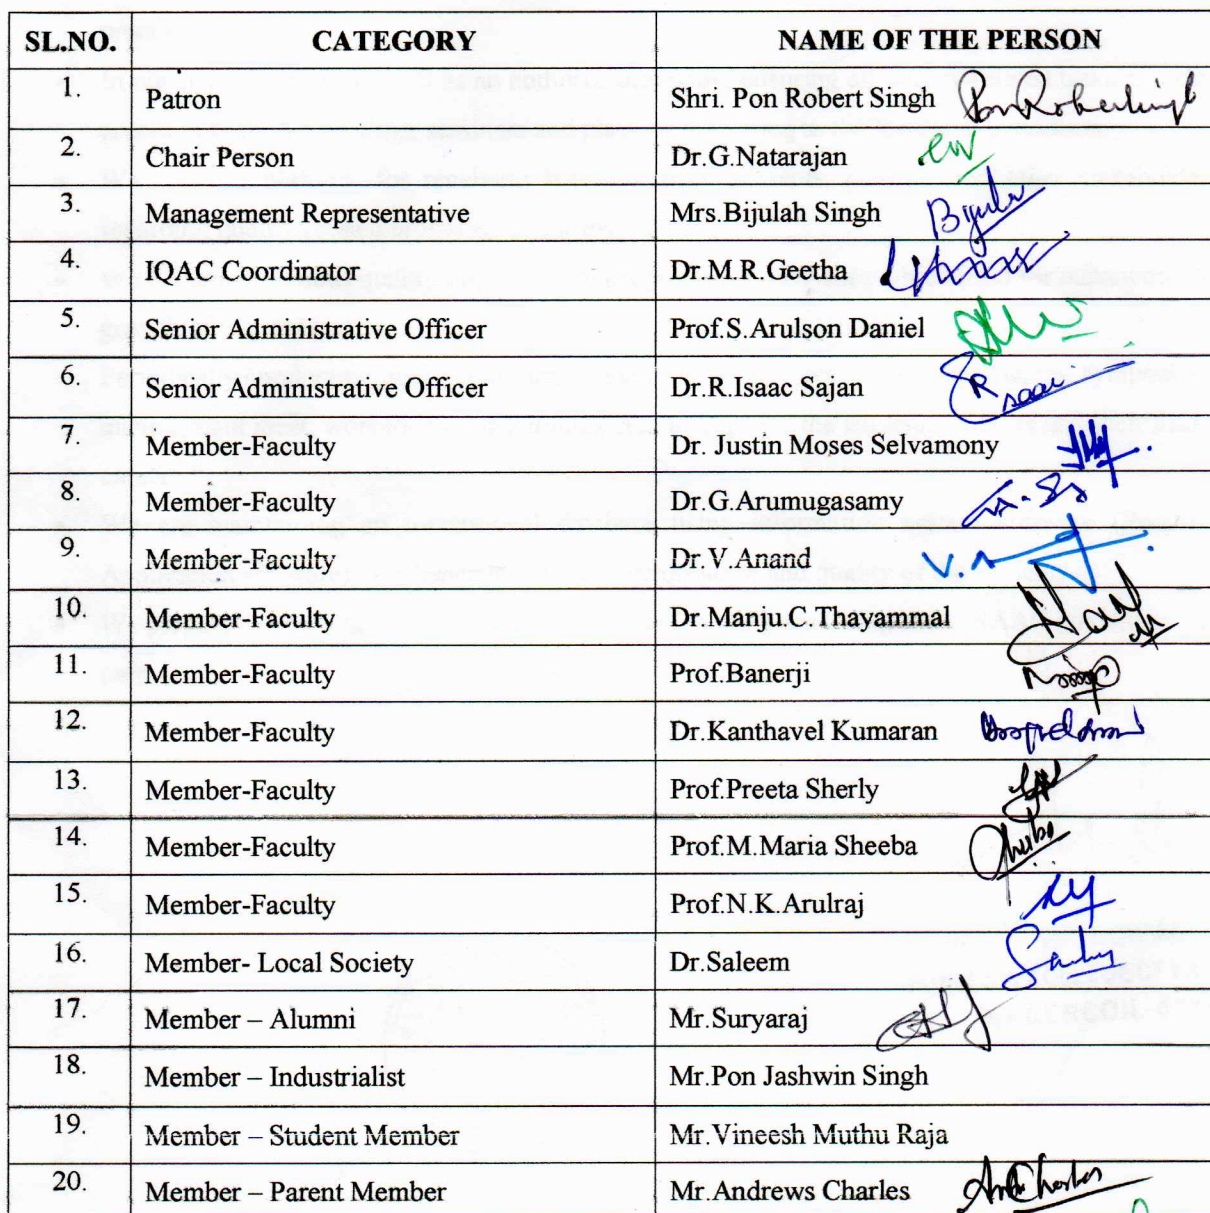 SL.NO. CATEGORY NAME OF THE PERSON
1. Patron Shri. Pon Robert Singh Pon Robertsingh
2. Chair Person Dr.G.Natarajan
3. Management Representative Mrs.Bijulah Singh Bijula
4. IQAC Coordinator Dr.M.R.Geetha
5. Senior Administrative Officer Prof.S.Arulson Daniel
6. Senior Administrative Officer Dr.R.Isaac Sajan
7. Member-Faculty Dr. Justin Moses Selvamony
8. Member-Faculty Dr.G.Arumugasamy
9. Member-Faculty Dr.V.Anand
10. Member-Faculty Dr.Manju.C.Thayammal
11. Member-Faculty Prof.Banerji
12. Member-Faculty Dr.Kanthavel Kumaran
13. Member-Faculty Prof.Preeta Sherly
14. Member-Faculty Prof.M.Maria Sheeba
15. Member-Faculty Prof.N.K.Arulraj
16. Member- Local Society Dr.Saleem
17. Member – Alumni Mr.Suryaraj
18. Member – Industrialist Mr.Pon Jashwin Singh
19. Member – Student Member Mr.Vineesh Muthu Raja
20. Member – Parent Member Mr.Andrews Charles